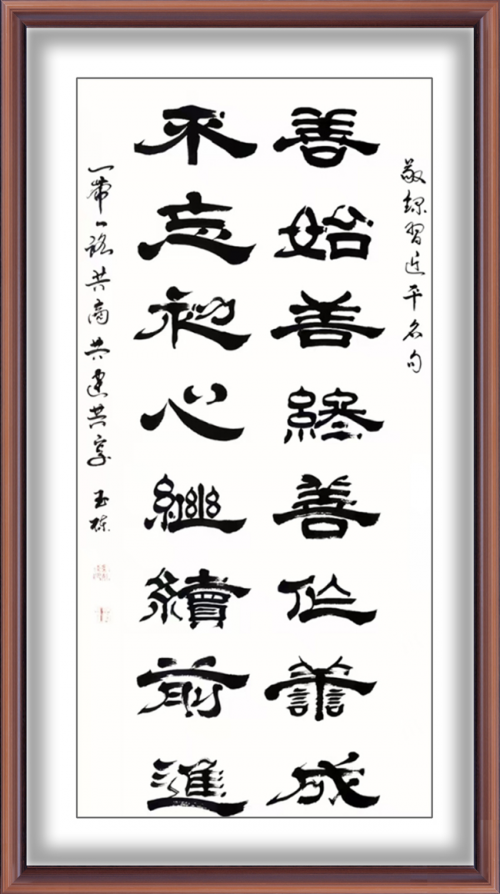 敬録習近平名句
善始善終善作善成
不忘初心繼續前進
一帶一路共商共建共享 玉栋